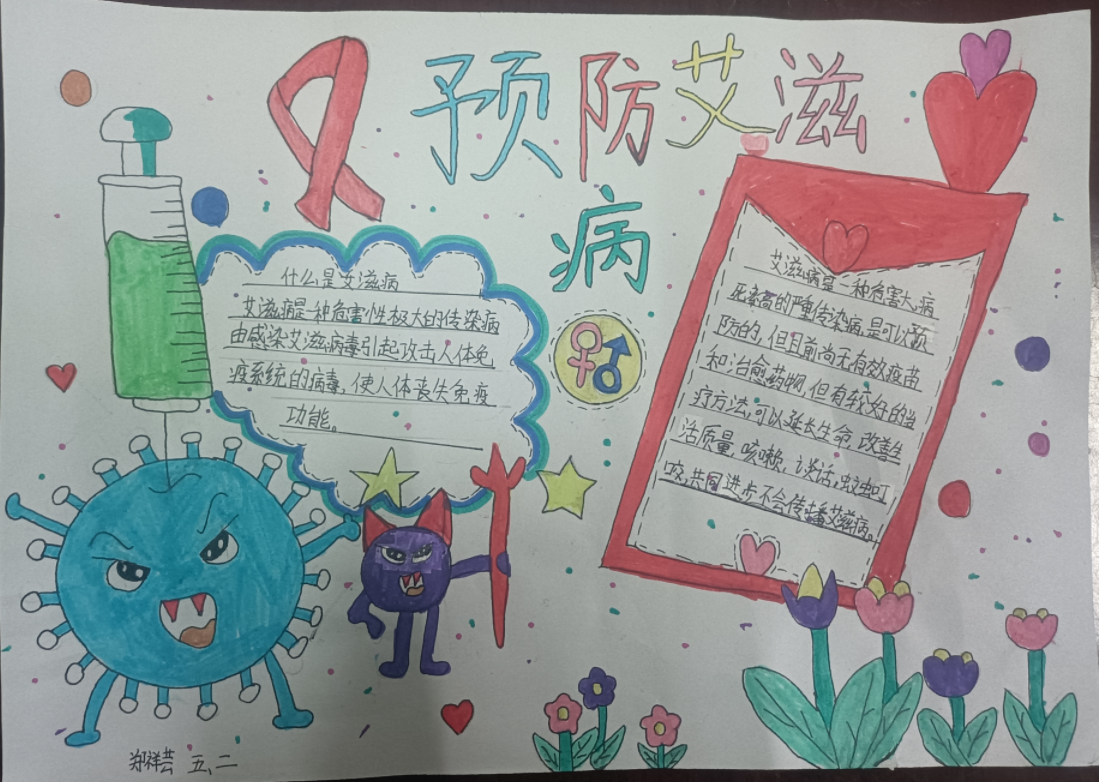 预防艾滋
病
什么是艾滋病
艾滋病是一种危害性极大的传染病
由感染艾滋病毒引起攻击人体免
疫系统的病毒,使人体丧失免疫
功能。
艾滋病是一种危害大,病
死率高的严重传染病,是可以预
防的,但目前尚无有效疫苗
和治愈药物,但有较好的当
疗方法,可以延长生命,改善生
活质量,咳嗽,谈话,蚊虫叮
咬,共同进步不会传播艾滋病。
郑祥芸 五、二